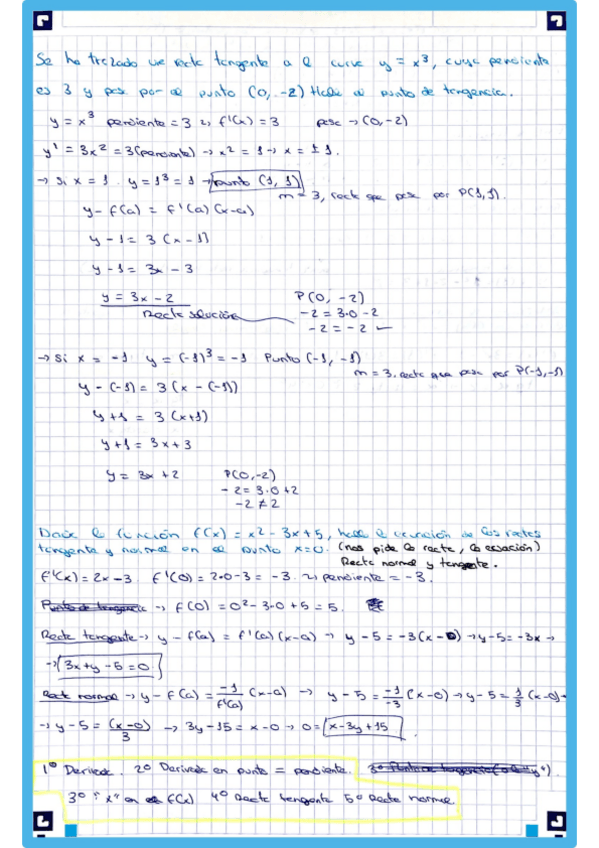 Se ha trazado una recta tangente a la curva y = x³, cuya pendiente
es 3 y pasa por el punto (0, -2) Halla el punto de tangencia.
y = x³ pendiente = 3 → f'(x) = 3 pasa → (0, -2)
y' = 3x² = 3 (pendiente) → x² = 1 → x = ± 1.
→ Si x = 1. y = 1³ = 1 → punto (1, 1)
m = 3, recta que pasa por P(1, 1).
y - f(a) = f'(a) (x-a)
y - 1 = 3 (x - 1)
y - 1 = 3x - 3
y = 3x - 2 P(0, -2)
Recta solución -2 = 3·0 - 2
-2 = -2 ✓
→ Si x = -1 y = (-1)³ = -1 Punto (-1, -1)
m = 3. recta que pasa por P(-1, -1)
y - (-1) = 3 (x - (-1))
y + 1 = 3 (x+1)
y + 1 = 3x + 3
y = 3x + 2 P(0, -2)
-2 = 3·0 + 2
-2 ≠ 2
Dada la función f(x) = x² - 3x + 5, halla la ecuación de las rectas
tangente y normal en el punto x=0. (nos pide la recta, la ecuación)
Recta normal y tangente.
f'(x) = 2x - 3 f'(0) = 2·0 - 3 = -3. → pendiente = -3.
Punto de tangencia → f(0) = 0² - 3·0 + 5 = 5.
Recta tangente → y - f(a) = f'(a) (x-a) → y - 5 = -3(x - 0) → y - 5 = -3x →
→ 3x + y - 5 = 0
Recta normal → y - f(a) = -1/f'(a) (x-a) → y - 5 = -1/-3 (x-0) → y - 5 = 1/3 (x-0) →
→ y - 5 = (x-0)/3 → 3y - 15 = x - 0 → 0 = x - 3y + 15.
1º Derivada. 2º Derivada en punto = pendiente.
3º "x" en f(x) 4º Recta tangente 5º Recta normal.